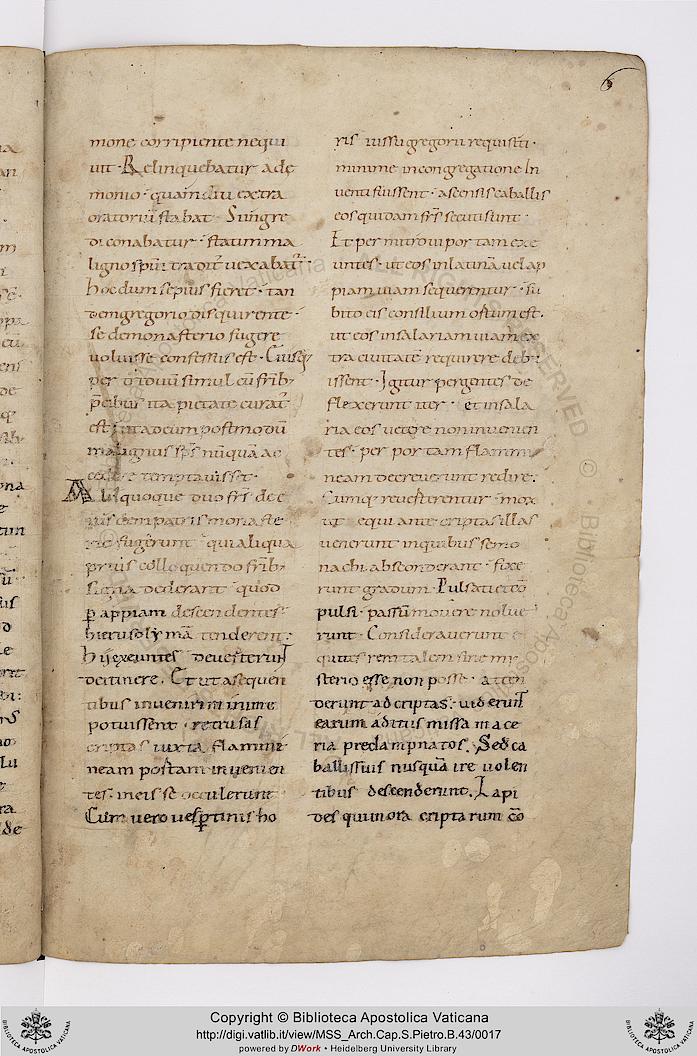 mone corripiente nequi
uit · Relinquebatur a dę
monio · quamdiu extra
oratoriū stabat · Si ingre
di conabatur · statim ma
ligno spūi traditꝰ uexabatꝰ ·
hoc dum sepius fieret · tan
dem gregorio disquirente ·
se de monasterio fugere
uoluisse confessus est · Cuiꝰ
simul cū frib;
p̄cibus ita pietate curatꝰ
est · ut ad eum postmodū
malignus sp̄s nūquā ac
cedere temptauisset ·
Alii quoque duo fr̄s de e
iusdem patris monaste
rio fugerunt · qui aliqua
prius colloquendo frib;
signa dederant · quod
p̱ appiam descendentes
hierusolymā tenderent :
hii exeuntes deuerterunt
de itinere . Et ut a sequen
tibus inueniri minime
potuissent · retrusas
criptas iuxta flammi
neam portam inuenien
tes · in eis se occulerunt
Cum uero uesp̱tinis ho
ris iussu gregorii requisiti ·
minime in congregatione in
uenti fuissent · ascensis caballis
eos quidam fr̄s secuti sunt ·
Et per mitroui portam exe
untes · ut eos in latinā uel ap
piam uiam sequerentur · su
bito eis consilium ortum est ·
ut eos in salariam uiam ex
tra ciuitatē requirere debu
issent · Igitur pergentes de
flexerunt iter · et in sala
ria eos uetere non inuenien
tes · per portam flammi
neam decreuerunt redire .
Cumq; reuerterentur · mox
ut equi ante criptas illas
uenerunt in quibus se mo
nachi absconderant · fixe
runt gradum · Pulsati et cō
pulsi · passū mouere nolue
runt · Considerauerunt e
quites rem talem sine my
sterio esse non posse · atten
derunt ad criptas · uiderunt
earum aditus missa mace
ria predampnatos . Sed ca
ballis suis nusquā ire uolen
tibus descenderunt . Lapi
des qui in ora criptarum cō
Copyright © Biblioteca Apostolica Vaticana
http://digi.vatlib.it/view/MSS_Arch.Cap.S.Pietro.B.43/0017
powered by DWork • Heidelberg University Library